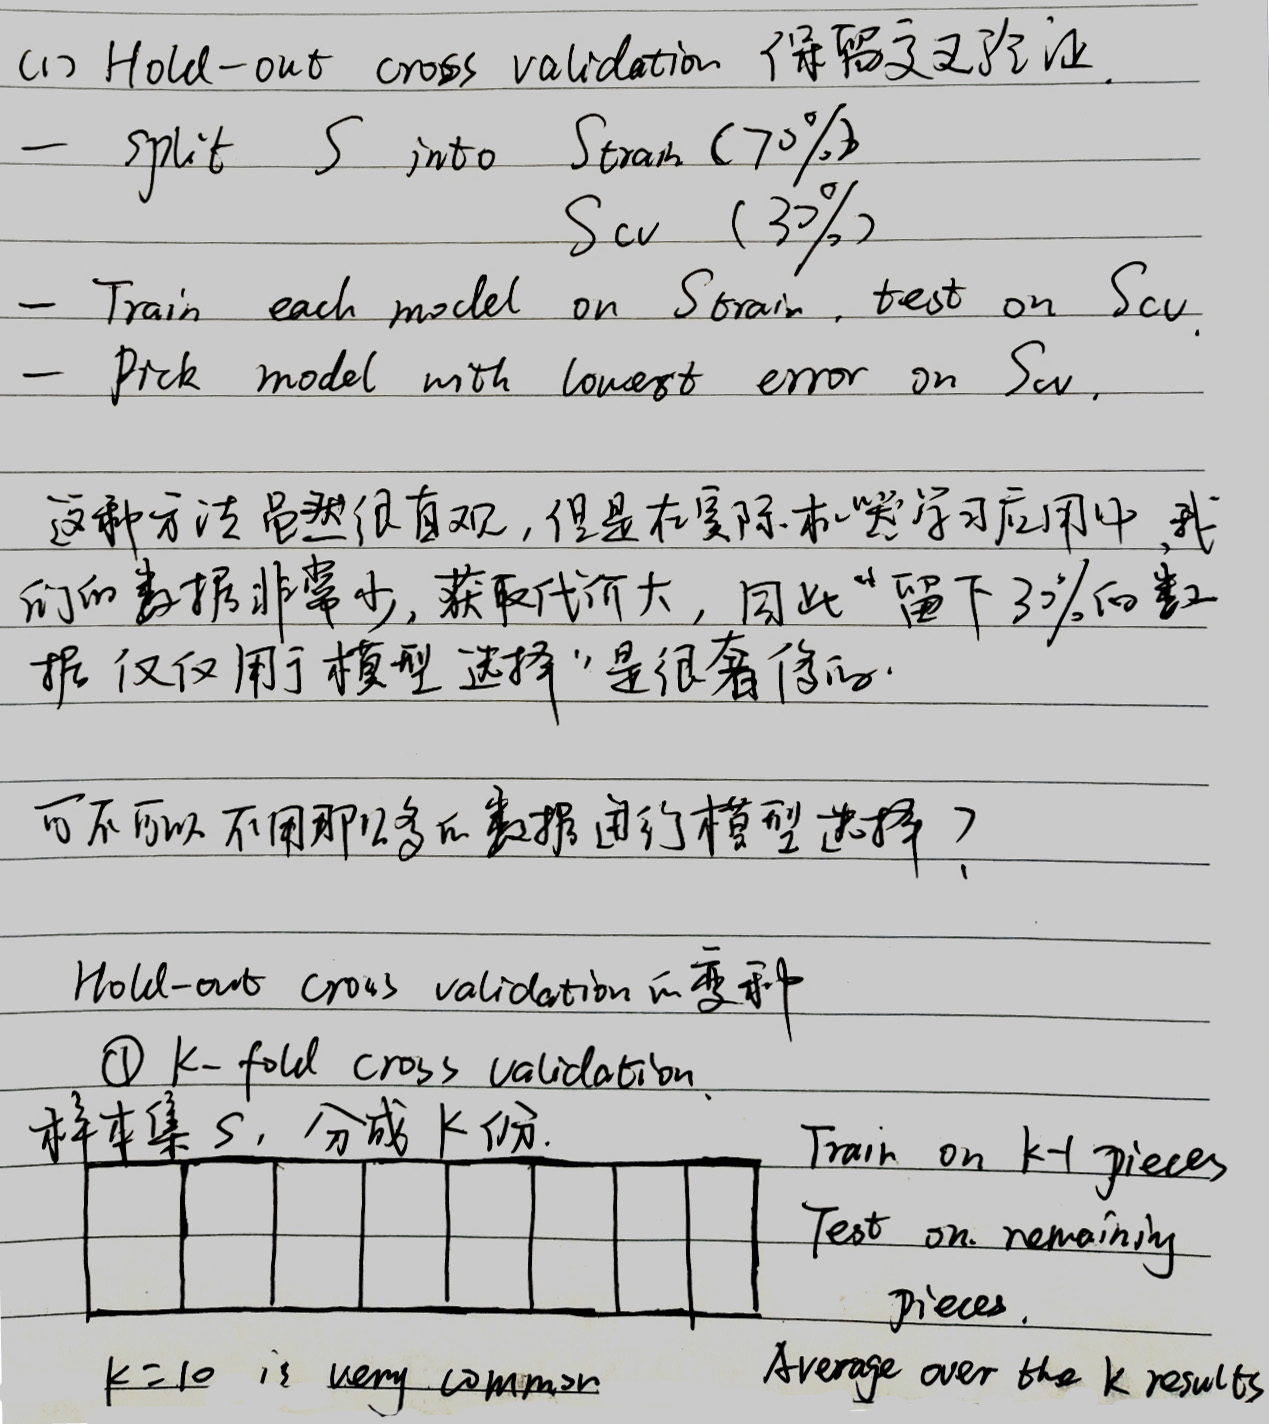 (1) Hold-out cross validation 保留交叉验证.
— split S into Strain (70%)
Scv (30%)
— Train each model on Strain, test on Scv.
— Pick model with lowest error on Scv.
这种方法虽然很直观,但是在实际机器学习应用中,我
们的数据非常少,获取代价大,因此“留下30%的数
据仅仅用于模型选择”是很奢侈的.
可不可以不用那么多的数据进行模型选择?
Hold-out cross validation的变种
① k-fold cross validation.
样本集S,分成k份.
Train on k-1 pieces
Test on remaining
pieces.
k=10 is very common
Average over the k results